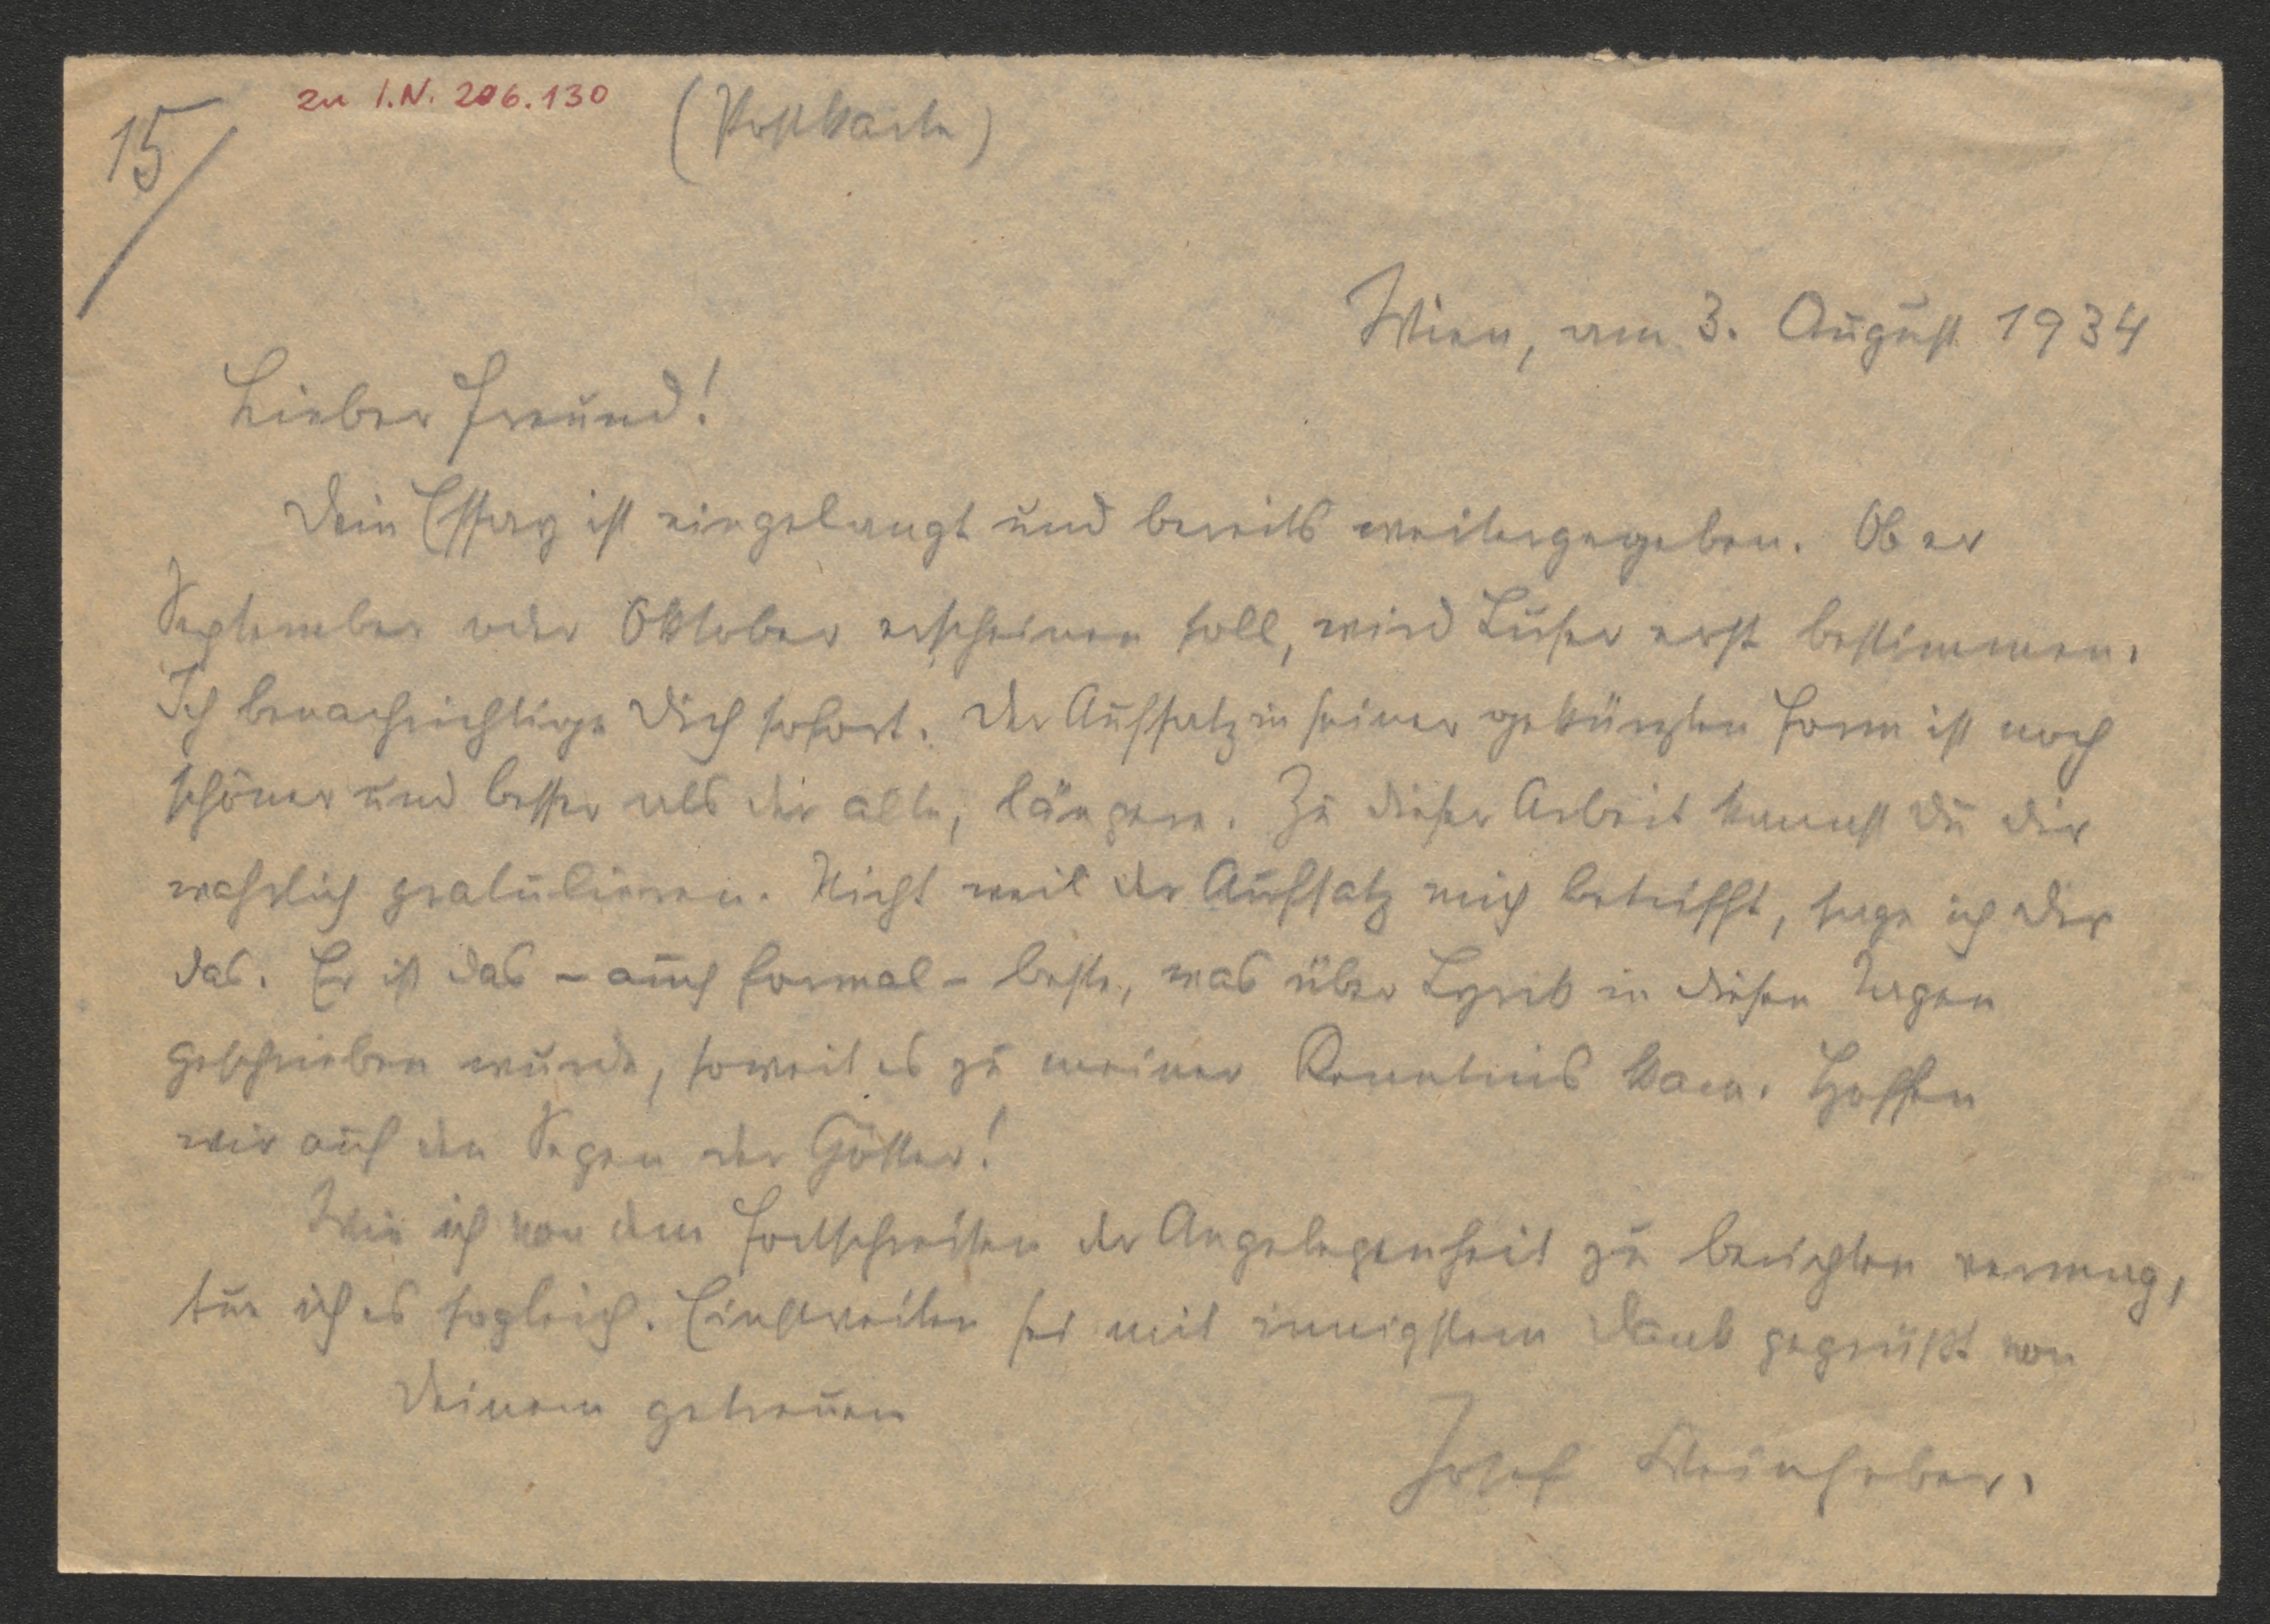 15/
zu I.N. 206.130
(Postkarte)
Wien, am 3. August 1934
Lieber Freund!
Dein Essay ist eingelangt und bereits weitergegeben. Ob er
September oder Oktober erscheinen soll, wird Luser erst bestimmen.
Ich benachrichtige Dich sofort. Der Aufsatz in seiner gekürzten Form ist noch
schöner und besser als der alte, längere. Zu dieser Arbeit kannst Du Dir
wahrlich gratulieren. Nicht weil der Aufsatz mich betrifft, sage ich Dir
das. Er ist das – auch formal – beste, was über Lyrik in diesen Tagen
geschrieben wurde, soweit es zu meiner Kenntnis kam. Hoffen
wir auf den Segen der Götter!
Wie ich von dem Fortschreiten der Angelegenheit zu berichten vermag,
tue ich es sogleich. Einstweilen sei mit innigstem Dank gegrüßt von
Deinem getreuen
Josef Weinheber.